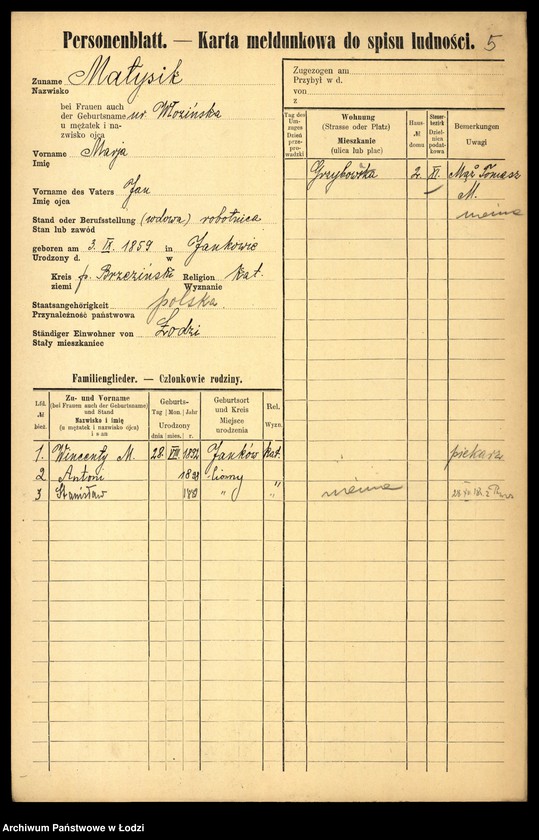 Personenblatt. — Karta meldunkowa do spisu ludności. 5
Zuname Małysik
Nazwisko
bei Frauen auch
der Geburtsname ur Wozińska
u mężatek i na-
zwisko ojca
Vorname Marja
Imię
Vorname des Vaters Jan
Imię ojca
Stand oder Berufsstellung (wdowa) robotnica
Stan lub zawód
geboren am 3. IX. 1859 in Jankowie
Urodzony d. w
Kreis p. Brzeziński Religion kat.
ziemi Wyznanie
Staatsangehörigkeit polska
Przynależność państwowa
Ständiger Einwohner von Łodzi
Stały mieszkaniec
Zugezogen am
Przybył w d.
von
z
Tag des Um-zuges Dzień prze-pro-wadzki
Wohnung (Strasse oder Platz) Mieszkanie (ulica lub plac)
Haus-№ domu
Steuer-bezirk Dziel-nica podat-kowa
Bemerkungen Uwagi
Grzybowska 2. XI. Mąż Tomasz
M.
Familienglieder. — Członkowie rodziny.
Lfd. № bież.
Zu- und Vorname (bei Frauen auch der Geburtsname) und Stand Nazwisko i imię (u mężatek i nazwisko ojca) i stan
Geburts- Tag Mon. Jahr Urodzony dnia mies. r.
Geburtsort und Kreis Miejsce urodzenia
Rel. Wyzn.
1. Wincenty M. 28. VIII Janków kat. piekarz
2 Antoni "
3 Stanisław " "
Archiwum Państwowe w Łodzi